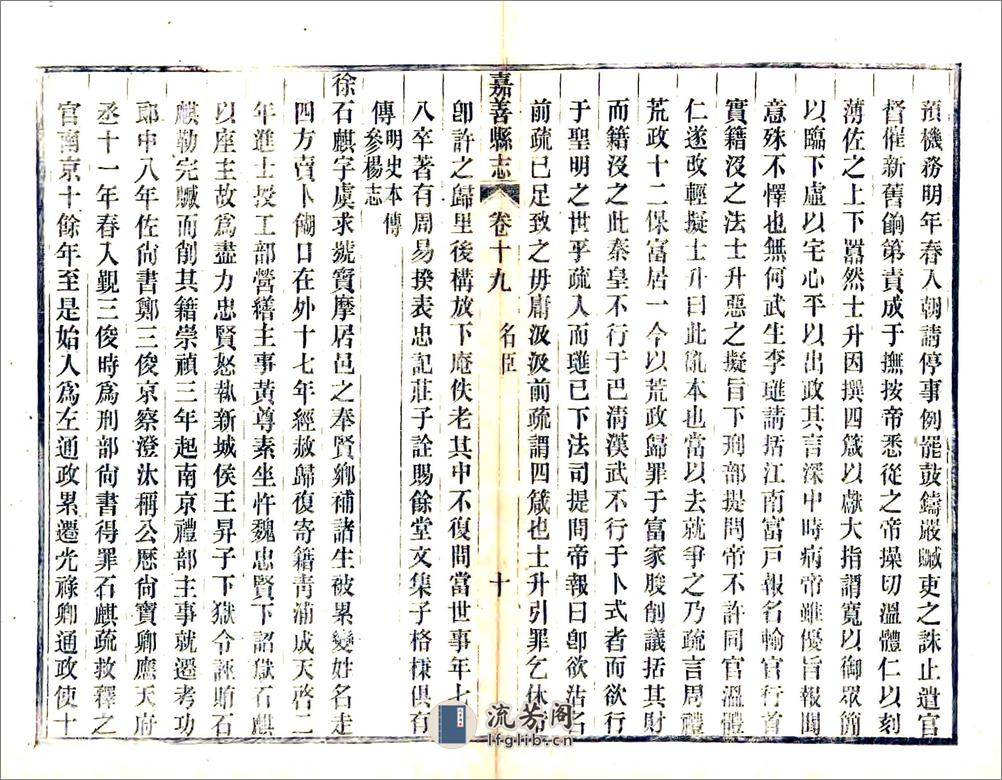 預機務明年春入朝請停事例罷鼓鑄嚴贓吏之誅止遣官
督催新舊餉第責成于撫按帝悉從之帝操切溫體仁以刻
薄佐之上下囂然士升因撰四箴以獻大指謂寬以御眾簡
以臨下虛以宅心平以出政其言深中時病帝雖優旨報聞
意殊不懌也無何武生李璡請括江南富戶報名輸官行首
實籍沒之法士升惡之擬旨下刑部提問帝不許同官溫體
仁遂改輕擬士升曰此亂本也當以去就爭之乃疏言周禮
荒政十二保富居一今以荒政歸罪于富家朘削議括其財
而籍沒之此秦皇不行于巴清漢武不行于卜式者而欲行
于聖明之世乎疏入而璡已下法司提問帝報曰卽欲沽名
前疏已足致之毋庸汲汲前疏謂四箴也士升引罪乞休帝
卽許之歸里後構放下庵佚老其中不復問當世事年七
八卒著有周易揆表忠記莊子詮賜餘堂文集子格棅俱有
傳明史本傳
參楊志
嘉善縣志 卷十九 名臣 十
徐石麒字虞求號寶摩居邑之奉賢鄉補諸生被累變姓名走
四方賣卜餬口在外十七年經赦歸復寄籍青浦成天啓二
年進士授工部營繕主事黃尊素坐忤魏忠賢下詔獄石麒
以座主故爲盡力忠賢怒執新城侯王昇子下獄令誣賄石
麒勒完贓而削其籍崇禎三年起南京禮部主事就遷考功
郎中八年佐尚書鄭三俊京察澄汰稱公歷尚寶卿應天府
丞十一年春入覲三俊時爲刑部尚書得罪石麒疏救釋之
官南京十餘年至是始入爲左通政累遷光祿卿通政使十
流芳阁
lfglib.cn